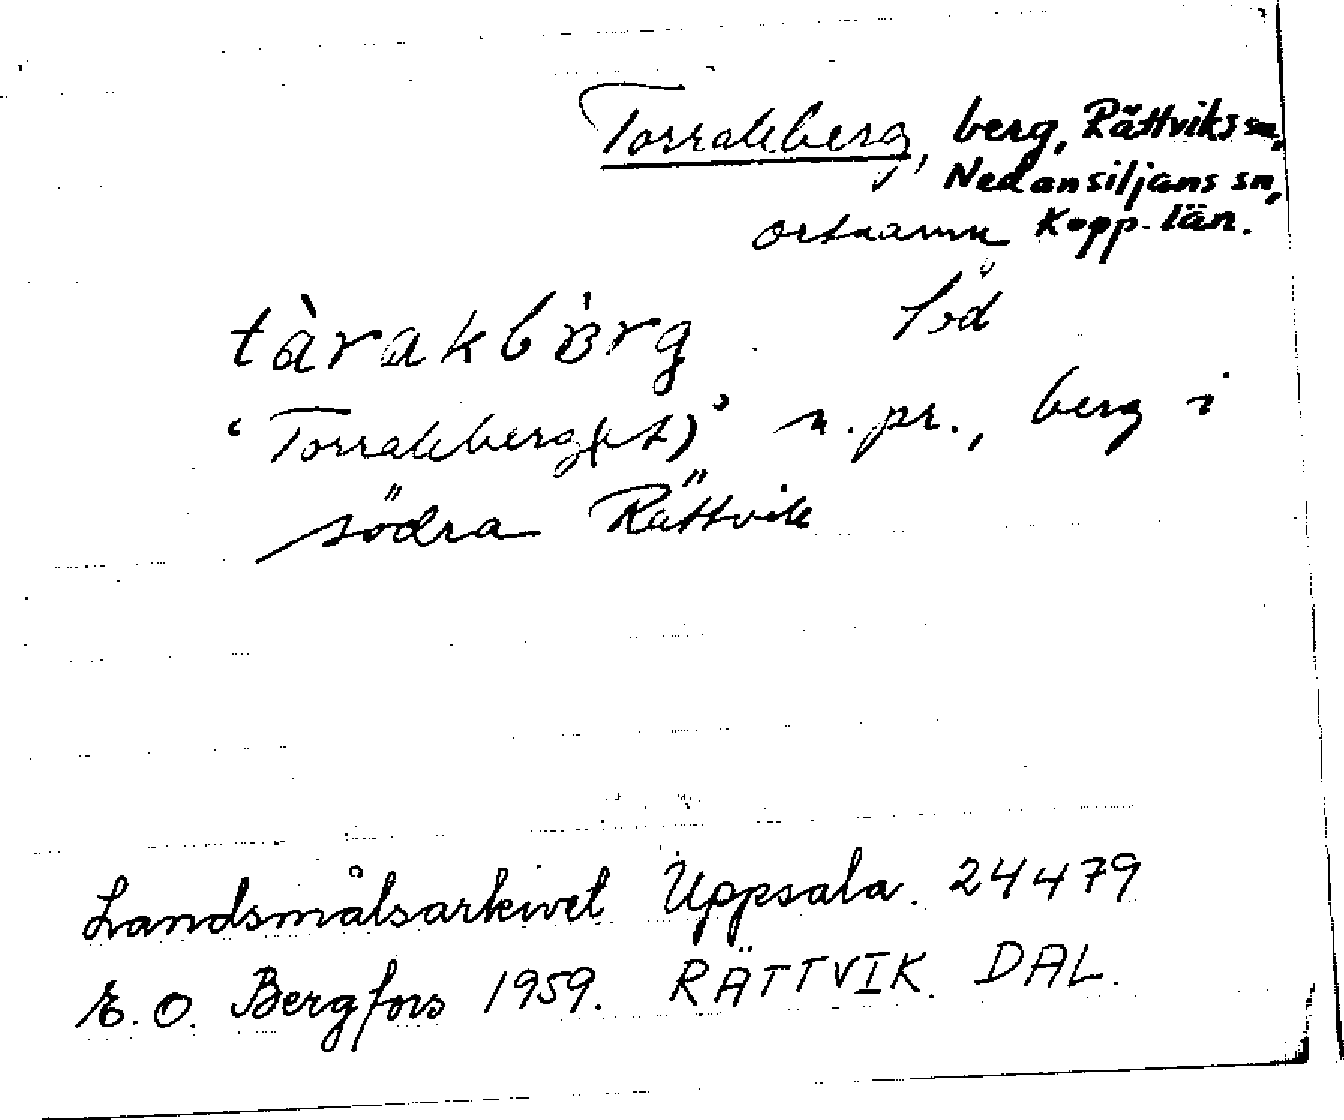 Torrakberg, berg, Rättviks sn,
Nedansiljans sn,
ortnamn Kopp. län.
tàrakbärg
"Torrakberg(et)" n. pr., berg i
södra Rättvik
Landsmålsarkivet Uppsala. 24479
E. O. Bergfors 1959. RÄTTVIK. DAL.